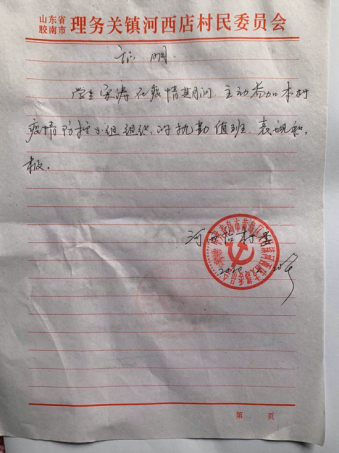 山东省
胶南市 理务关镇河西店村民委员会
证明
学生宋涛在疫情期间，主动参加本村
疫情防控小组组织的执勤值班，表现积
极。
河西店村委
第 页